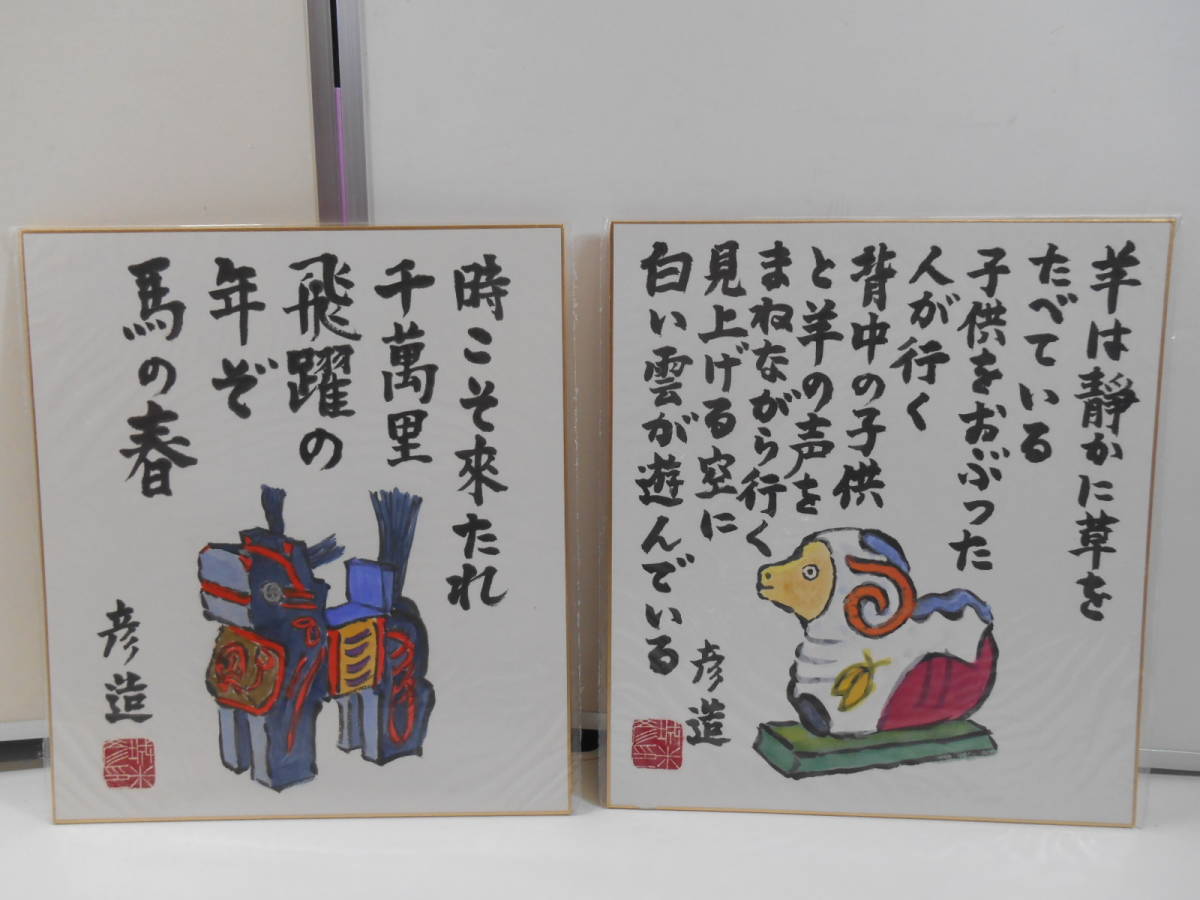 時こそ來たれ
千萬里
飛躍の
年ぞ
馬の春
彦造
羊は静かに草を
たべている
子供をおぶった
人が行く
背中の子供
と羊の声を
まねながら行く
見上げる空に
白い雲が遊んでいる
彦造